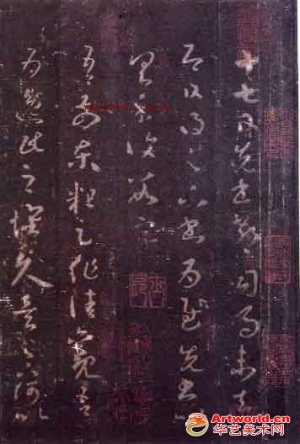 十七日先書郗司馬未去
即日得足下書為慰先書以
具示復數字
吾前東粗足作佳觀吾
為逸民之懷久矣足下何以
Artworld.cn
华艺美术网